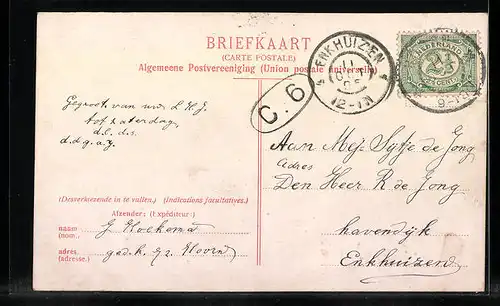 BRIEFKAART
(CARTE POSTALE)
Algemeene Postvereeniging (Union postale universelle)
ENKHUIZEN
11
12-1N
NEDERLAND
2½
CENT
9-
C.6
Gegroet van
tot zaterdag
d.l. d.s.
d.d.g.a.y.
Aan Mej Sytje de Jong
Adres
Den Heer R de Jong
havendijk
Enkhuizen
(Desverkiezende in te vullen.) (Indications facultatives.)
Afzender: (Expéditeur:)
naam G Hoekema
(nom.)
adres. Hoorn
(adresse.)